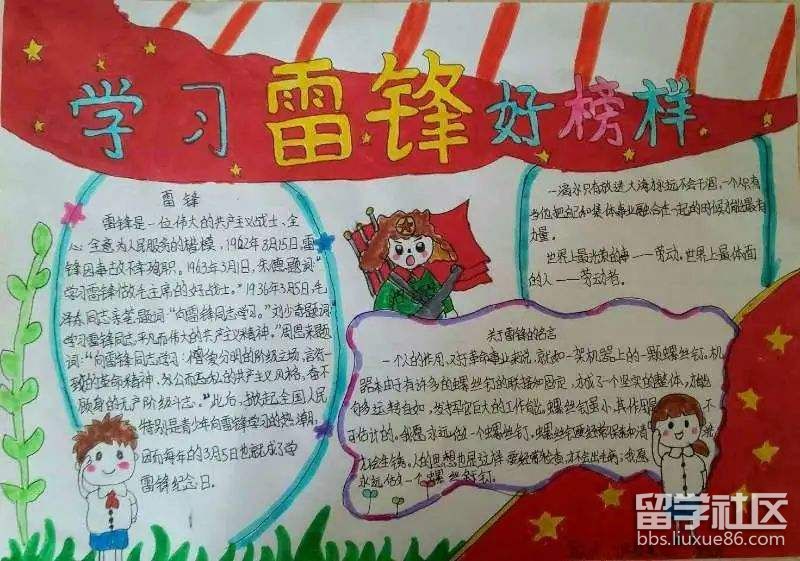 学习雷锋好榜样
雷锋
雷锋是一位伟大的共产主义战士、全
心全意为人民服务的楷模，1962年8月15日,雷
锋因事故不幸殉职。1963年3月1日，朱德题词
"学习雷锋 做毛主席的好战士。"1936年3月5日,毛
泽东同志亲笔题词"向雷锋同志学习。"刘少奇题词
学习雷锋同志平凡而伟大的共产主义精神。"周恩来题
词:"向雷锋同志学习:憎爱分明的阶级立场,言行一
致的革命精神，公而忘私的共产主义风格，奋不
顾身的无产阶级斗志。"此后，掀起全国人民
特别是青少年向雷锋学习的热潮,
因而每年的3月5日也就成了
雷锋纪念日。
一滴水只有放进大海才永远不会干涸，一个人只有
当他把自己和集体事业融合在一起的时候才能最有
力量。
世界上最光荣的事——劳动。世界上最体面
的人——劳动者。
关于雷锋的名言
一个人的作用，对于革命事业来说，就如一架机器上的一颗螺丝钉。机
器由于有许多的螺丝钉的联接和固定，才成了个坚实的整体，才能
够运转自如，发挥它巨大的工作能。螺丝钉虽小，其作用是不
可估计的。我愿永远做一个螺丝钉。螺丝钉要经常保养和清
才不会生锈。人的思想也是这样 要经常检查,才不会出毛病。我愿
永远做一个螺丝钉。
留学社区
bbs.liuxue86.com